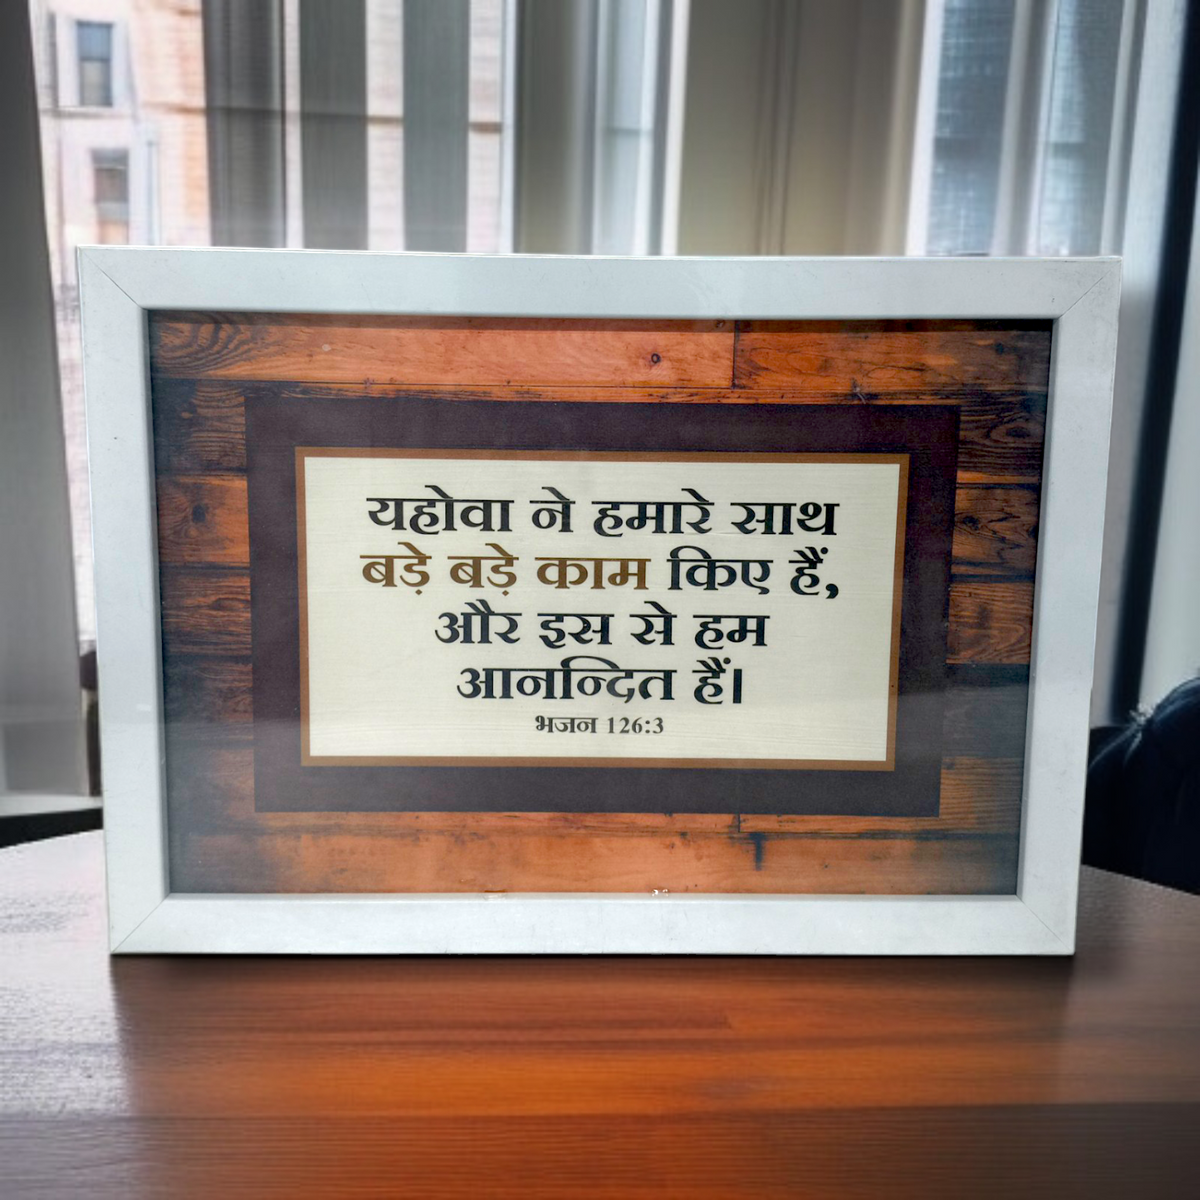 यहोवा ने हमारे साथ
बड़े बड़े काम किए हैं,
और इस से हम
आनन्दित हैं।
भजन 126:3